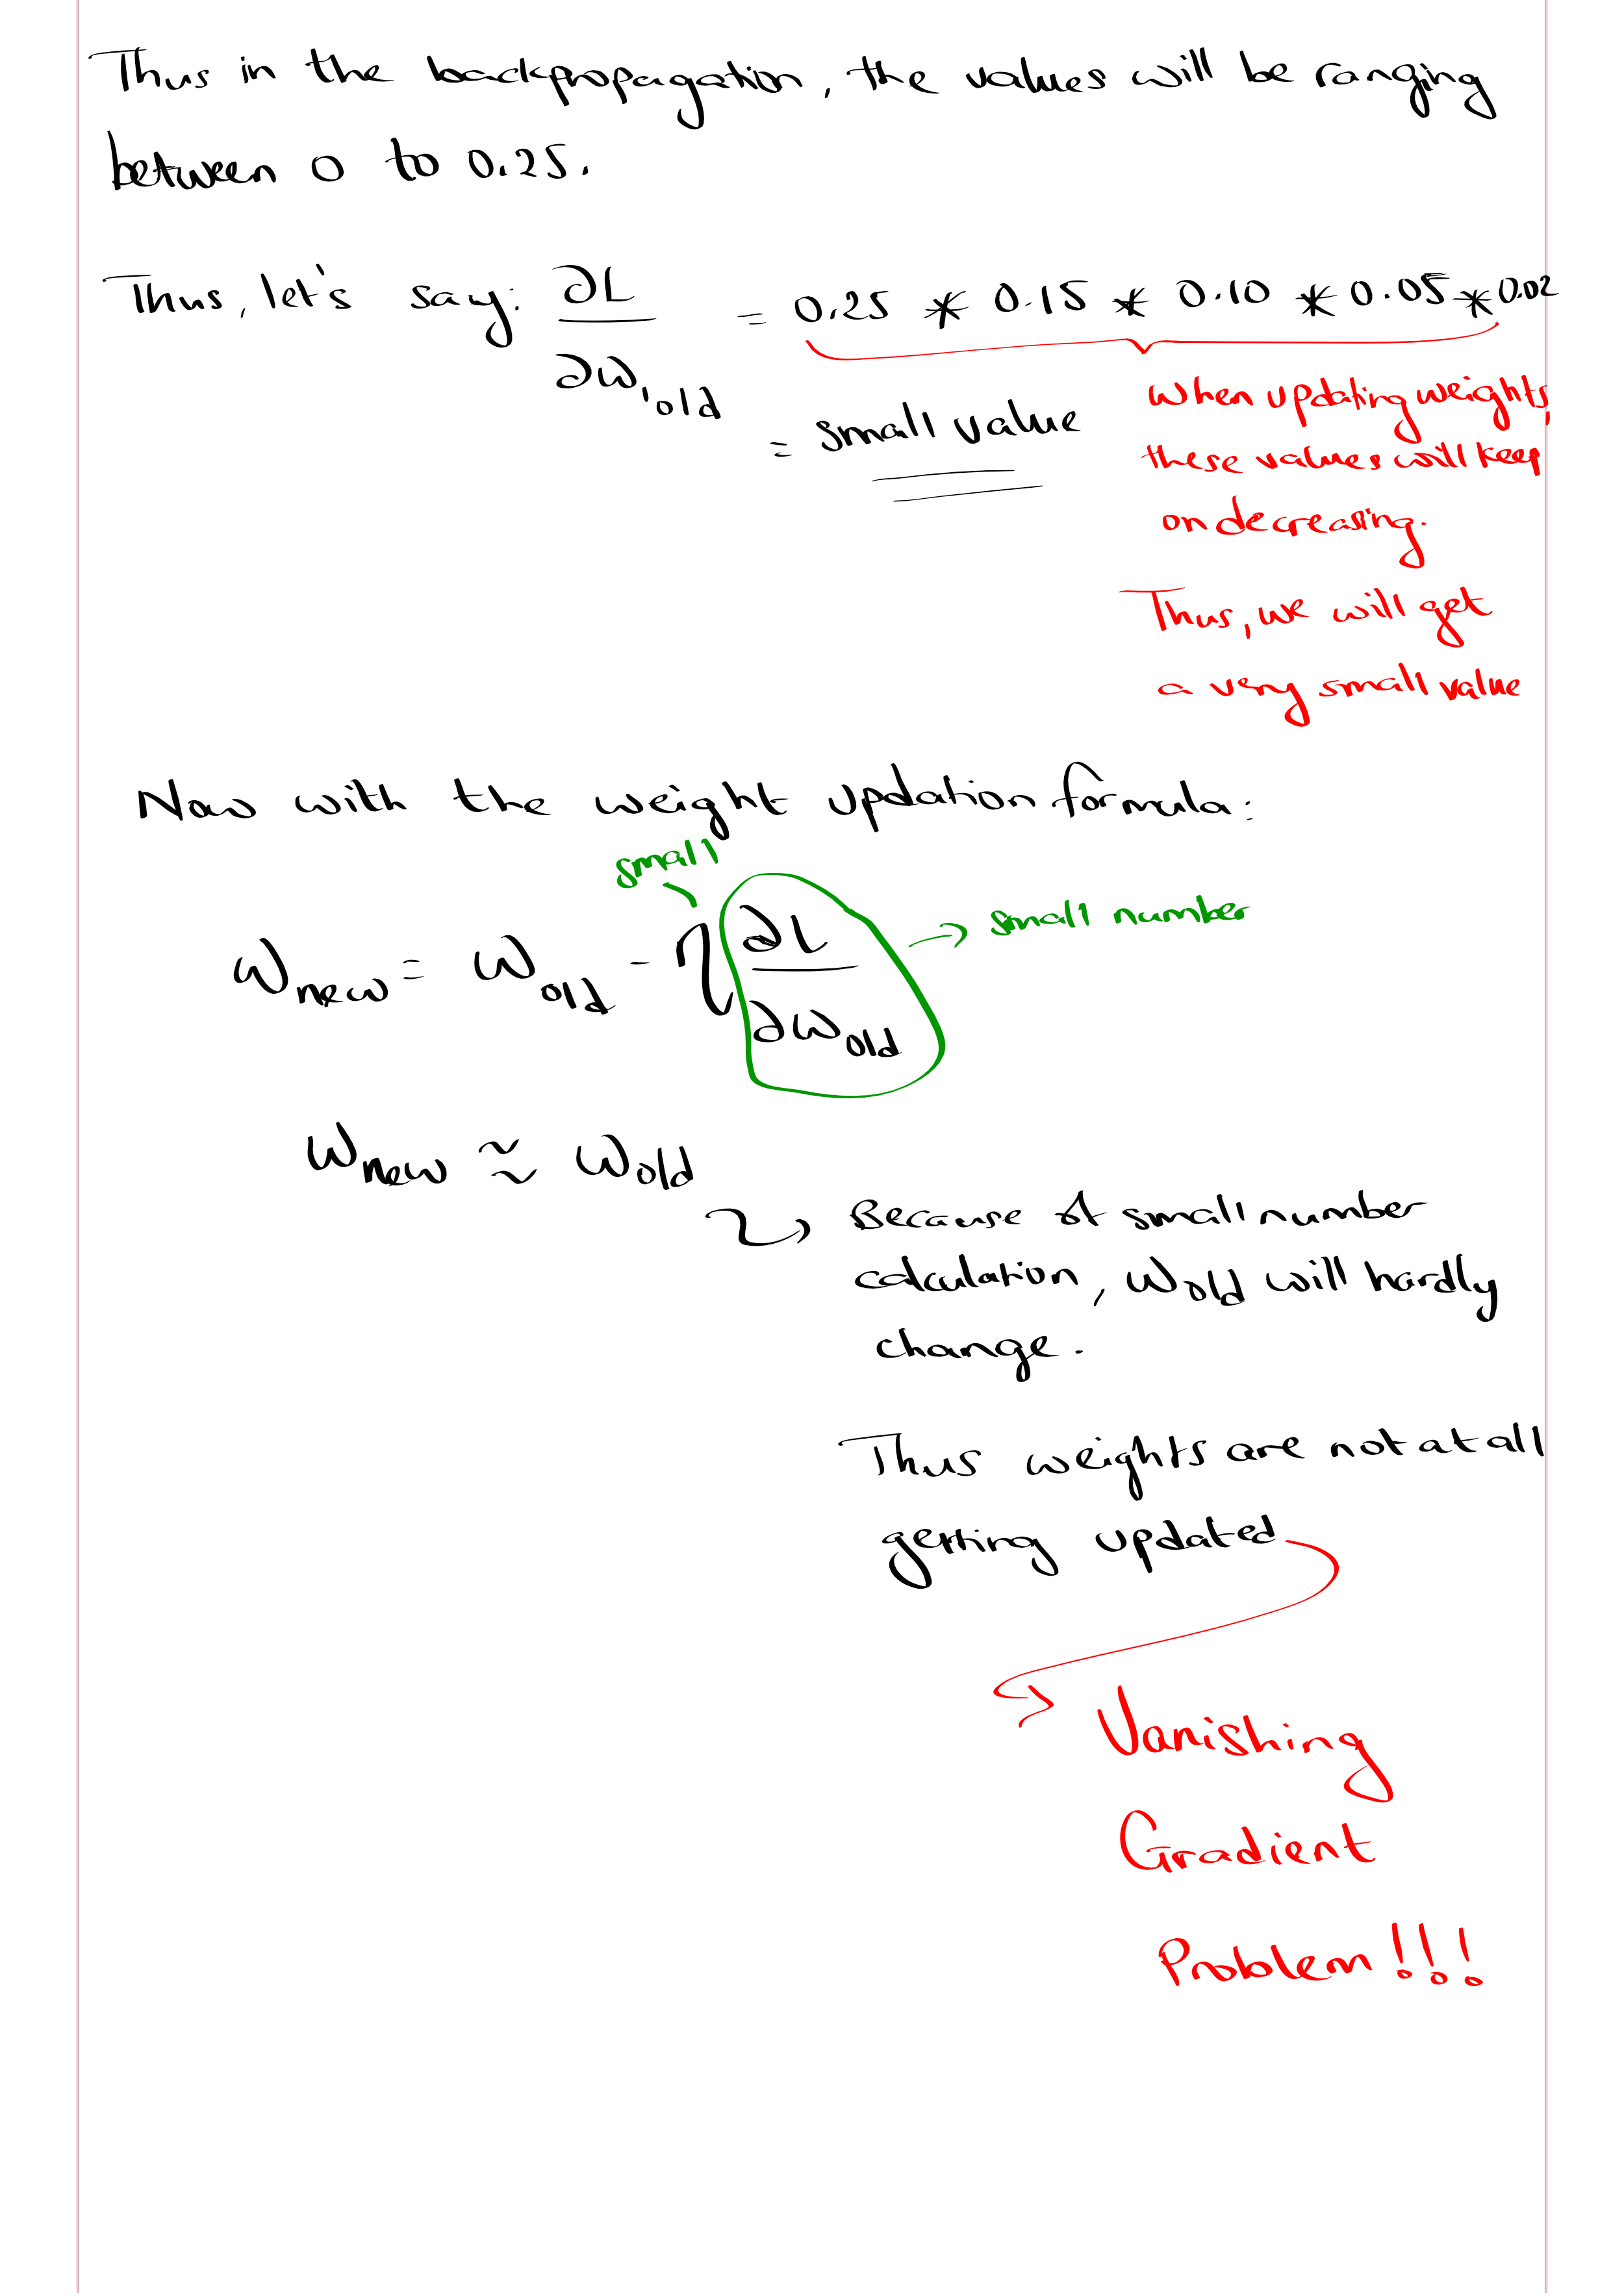 Thus in the backpropagation, the values will be ranging
between 0 to 0.25.
Thus, let's say: ∂L / ∂w₁old = 0.25 * 0.15 * 0.10 * 0.05 * 0.02
= small value
When updating weights,
these values will keep
on decreasing.
Thus, we will get
a very small value
Now with the weight updation formula:
small
w new = w old - η ∂L / ∂w old → small number
w new ≈ w old
→ Because of small number
calculation, w old will hardly
change.
Thus weights are not at all
getting updated
→ Vanishing
Gradient
Problem!!!